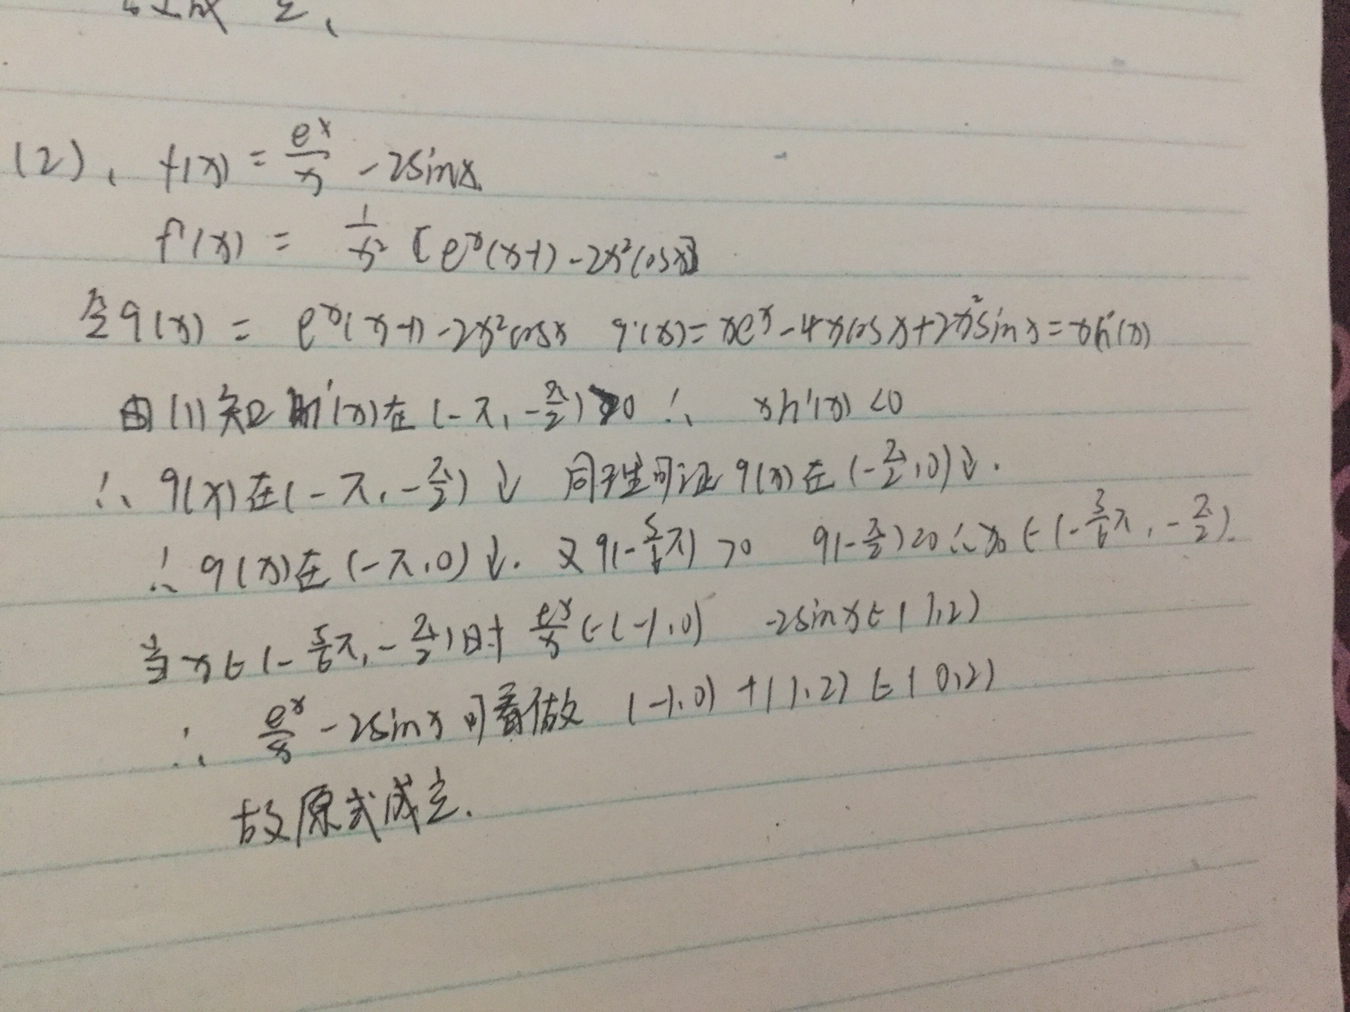 (2)、f(x) = e^x/x - 2sinx
f'(x) = 1/x² [e^x(x-1) - 2x²cosx]
令g(x) = e^x(x-1) - 2x²cosx g'(x) = xe^x - 4xcosx + 2x²sinx = xh'(x)
由(1)知 h'(x)在(-π, -π/2) >0 ∴ xh'(x) <0
∴ g(x)在(-π, -π/2)↓ 同理可证 g(x)在(-π/2, 0)↓.
∴ g(x)在(-π, 0)↓. 又g(-5/6π) >0 g(-π/2)<0 ∴ x₀∈(-5/6π, -π/2).
当x∈(-5/6π, -π/2)时 e^x/x ∈(-1, 0) -2sinx∈(1, 2)
∴ e^x/x - 2sinx 可看做 (-1, 0) + (1, 2) ∈(0, 2)
故原式成立.